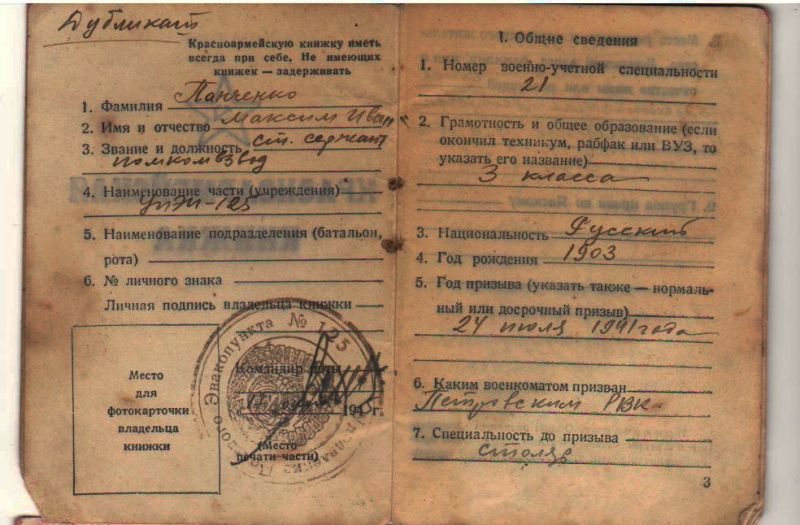 Дубликат
Красноармейскую книжку иметь
всегда при себе. Не имеющих
книжек — задерживать
1. Фамилия Панченко
2. Имя и отчество Максим Иван
3. Звание и должность ст. сержант
помкомвзвод
4. Наименование части (учреждения)
УпЭп-125
5. Наименование подразделения (батальон,
рота)
6. № личного знака
Личная подпись владельца книжки
Место
для
фотокарточки
владельца
книжки
№ 125
Командир роты
194 г.
(Место
печати части)
I. Общие сведения
1. Номер военно-учетной специальности
21
2. Грамотность и общее образование (если
окончил техникум, рабфак или ВУЗ, то
указать его название)
3 класса
3. Национальность Русский
4. Год рождения 1903
5. Год призыва (указать также — нормаль-
ный или досрочный призыв)
24 июля 1941 года
6. Каким военкоматом призван
Петровским РВК
7. Специальность до призыва
столяр
3